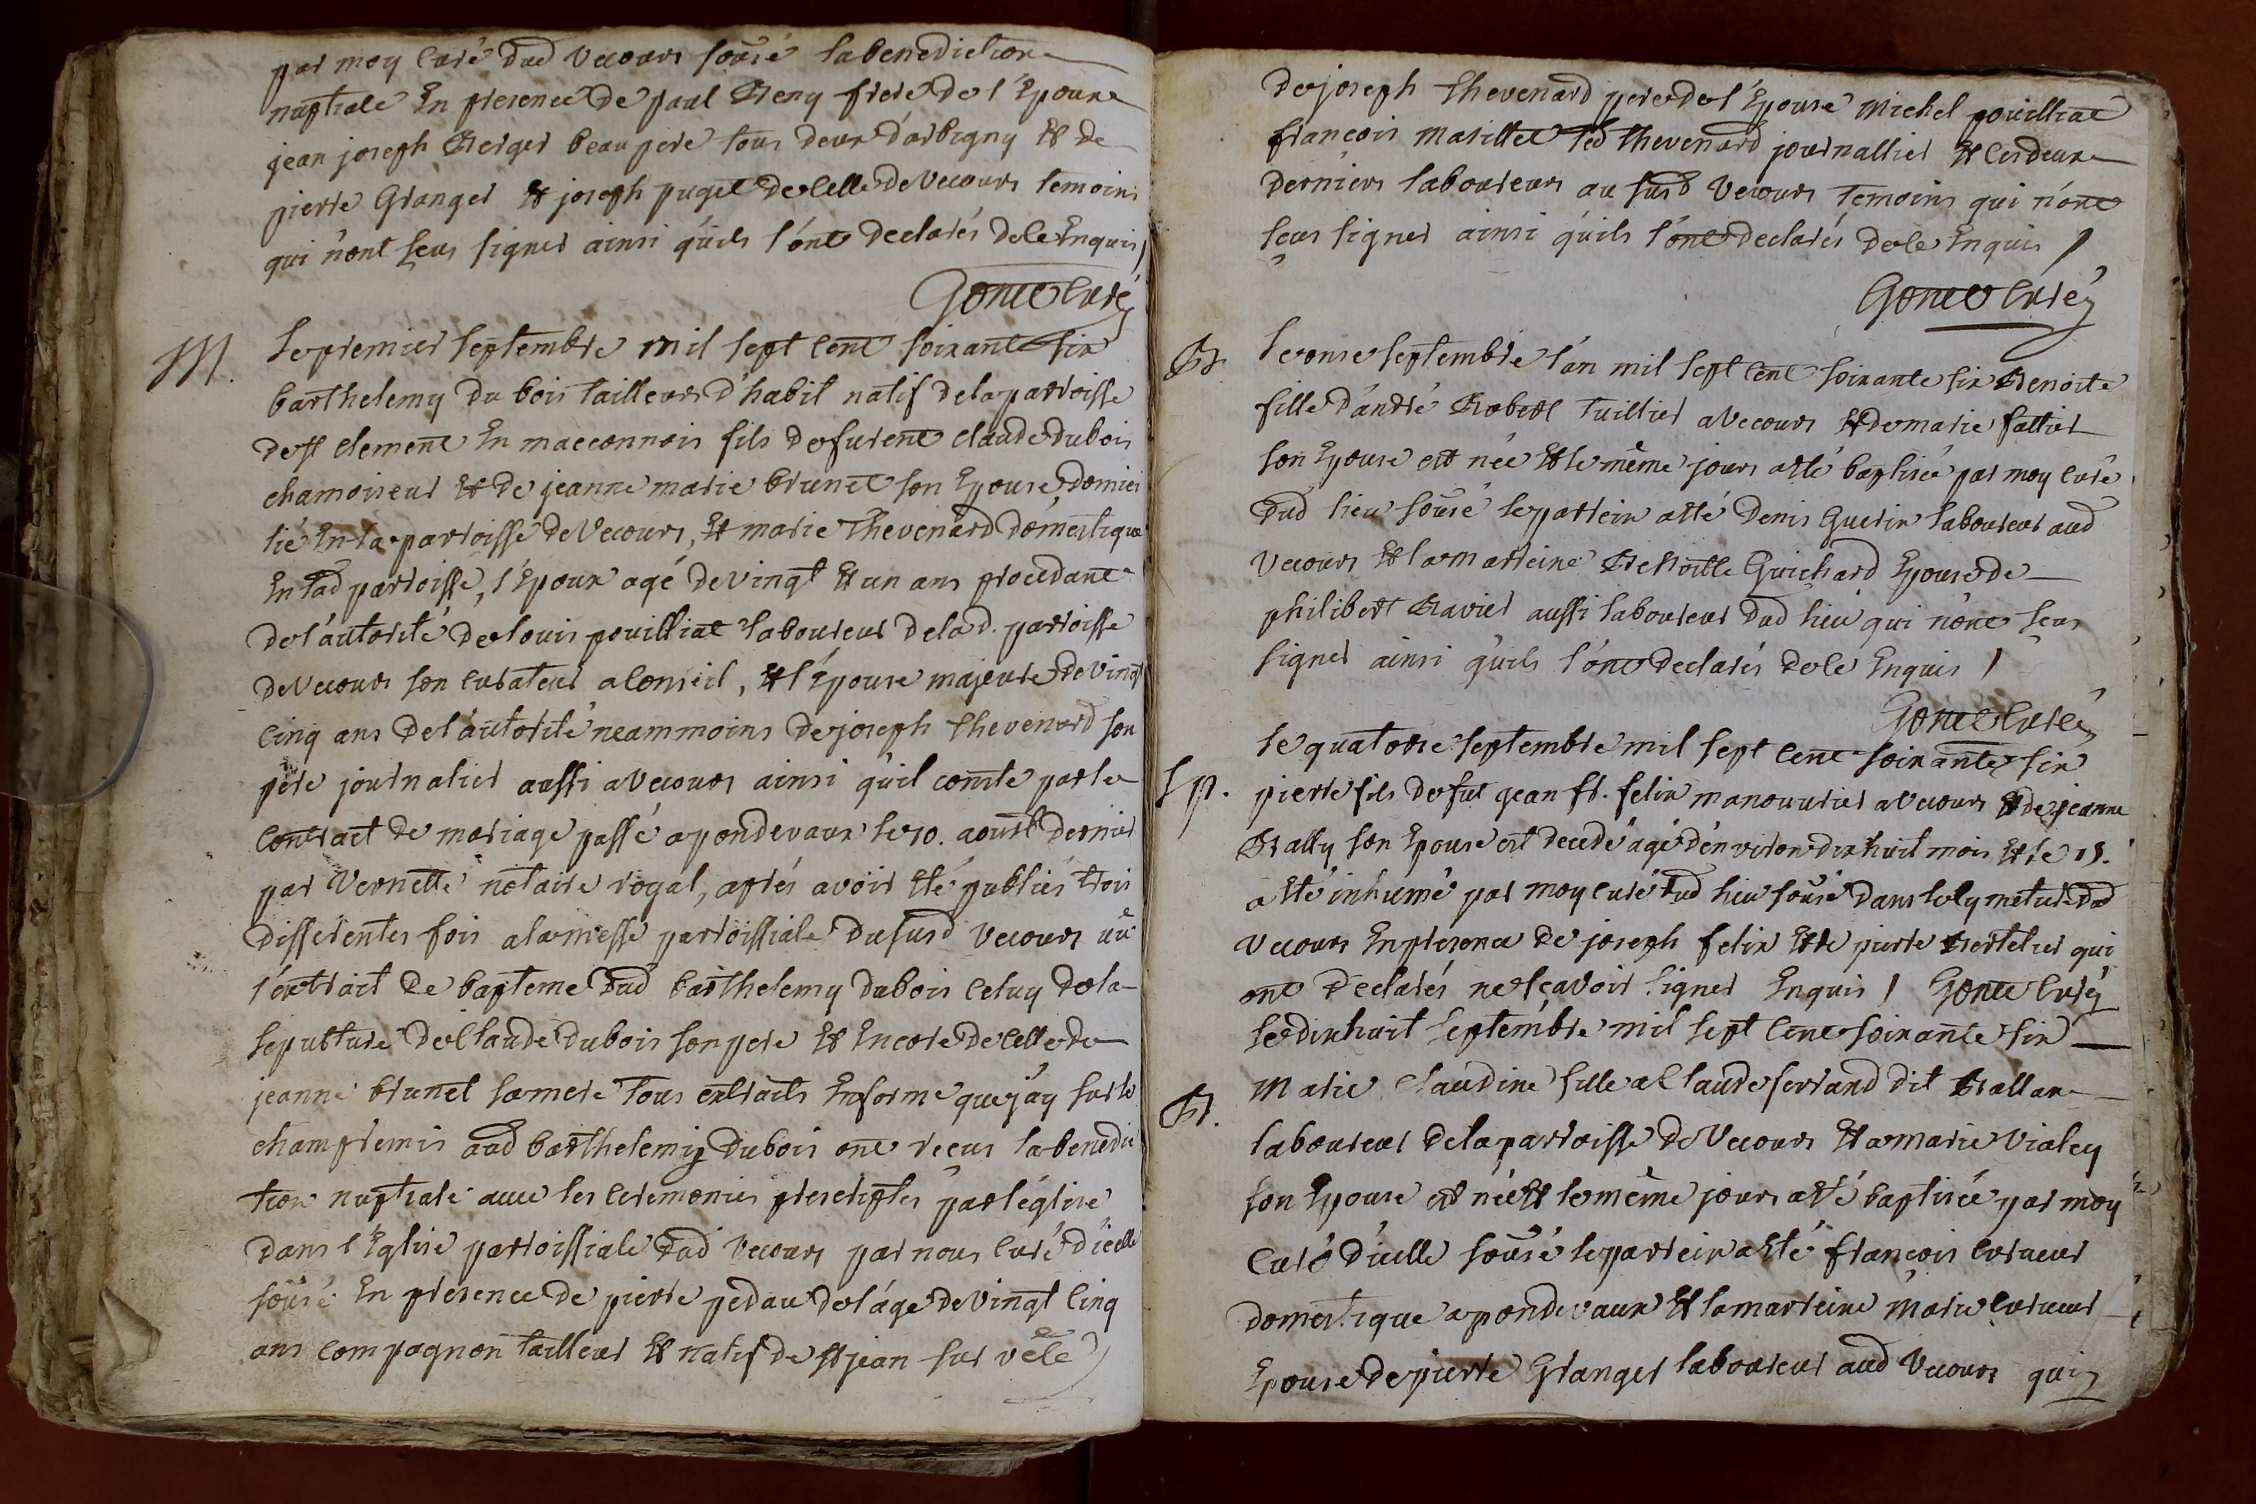 par moy curé dud Vecours sousé la benediction
nuptiale En presence de paul Beny frere de l'Epoux
jean joseph Berger beau pere tous deux d'arbigny Et de
pierre Granger Et joseph puget de celle de Vecours temoins
qui n'ont sçus signer ainsi qu'ils l'ont declarés de le Enquis /
Gonet Curé
M. Le premier septembre mil sept cent soixante six
barthelemy du bois tailleur d'habit natif de la parroisse
de st clement En macconnois fils de furent claude dubois
chamoiseur Et de jeanne marie brunet son Epouse, domici
lié En la parroisse de Vecours, Et marie Thevenard domestique
En lad parroisse, l'Epoux agé de vingt Et un ans procedant
de l'autorité de louis pouilliat laboureur de lad. parroisse
de Vecours son curateur a conseil, Et l'Epouse majeure de vingt
cinq ans de l'autorité neammoins de joseph thevenard son
pere journalier aussi a Vecours ainsi qu'il comte par le
contract de mariage passé a pondevaux le 10. aoust dernier
par Vernette notaire royal, aprés avoir Eté publiés trois
differentes fois a la messe parroissiale du susd Vecours vû
l'extrait de bapteme dud barthelemy dubois celuy de la
sepulture de Claude dubois son pere Et Encore de celle de
jeanne brunet sa mere tous extraits En forme que j'ay sur le
champ remis aud barthelemy dubois ont reçus la benedic
tion nuptiale avec les ceremonies prescriptes par l'église
dans l'Eglise parroissiale dud Vecours par nous curé d'icelle
sousé En presence de pierre pedau de l'áge de vingt cinq
ans compagnon tailleur Et natif de st jean sur vêle
de joseph thevenard pere de l'Epouse Michel pouilliat
françois marillet led thevenard journallier Et les deux
derniers laboureurs au susd Vecours temoins qui n'ont
sçus signer ainsi qu'ils l'ont declarés de le Enquis /
Gonet Curé
B. Le onze septembre l'an mil sept cent soixante six Benoite
fille d'andré Robert tuillier a Vecours Et de marie sattier
son Epouse est née Et le même jours a Eté baptisée par moy curé
dud lieu sousé le parrein a Eté Denis Guerin laboureur aud
Vecours Et la marreine Benoitte Guichard Epouse de
philibert Ravier aussi laboureur dud lieu qui n'ont sçus
signer ainsi qu'ils l'ont declarés de le Enquis /
Gonet Curé
Le quatorze septembre mil sept cent soixante six
Sp. pierre fils de fut jean fr. felix manouvrier a Vecours Et de jeanne
Bally son Epouse est decedé agé d'environ dix huit mois Et le 15.
a Eté inhumé par moy curé dud lieu sousé dans le cymetiere dud
Vecours En presence de joseph felix Et de pierre Bertelier qui
ont declarés ne sçavoir signer Enquis / Gonet Curé
Le dixhuit septembre mil sept cent soixante six
B. Marie Claudine fille a Claude ferrand dit Ballan
laboureur de la parroisse de Vecours Et a marie Vialey
son Epouse est née Et le même jours a Eté baptisée par moy
Curé d'icelle sousé le parrein a Eté françois
domestique a pondevaux Et la marreine Marie
Epouse de pierre Granger laboureur aud Vecours qui